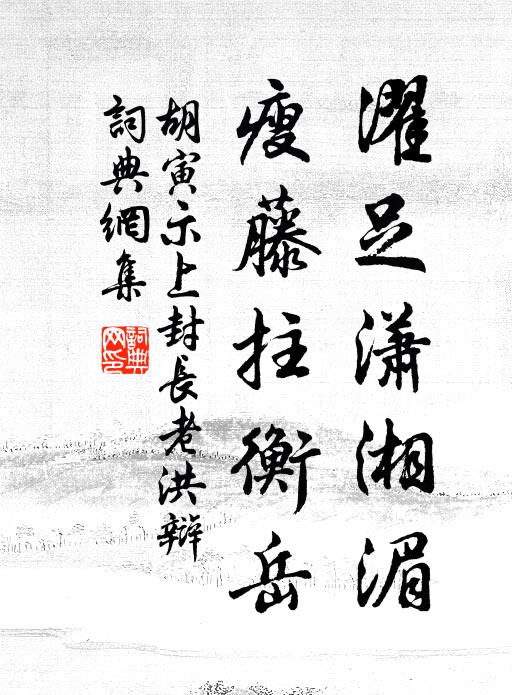 濯足瀟湘湄
瘦藤拄衡岳
胡寅示上封長老洪辯
詞典網集
詞典网印